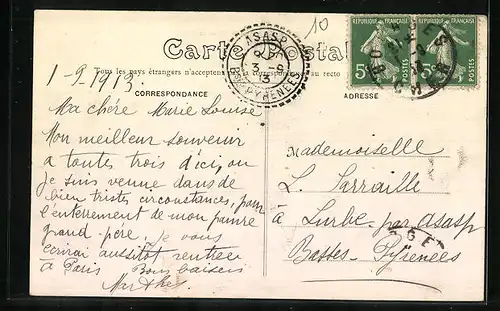 10
Carte Postale
Tous les pays étrangers n'acceptent la correspondance au recto
CORRESPONDANCE
ADRESSE
ASASP
3 - 9
13
BSES PYRENEES
REPUBLIQUE FRANÇAISE
5c POSTES
REPUBLIQUE FRANÇAISE
5c POSTES
1-9-1913
Ma chère Marie Louise
Mon meilleur souvenir
a toutes trois d'ici, ou
je suis venue dans de
bien tristes circonstances, pour
l'enterement de mon pauvre
grand-père, je vous
ecrirai aussitôt rentrée
à Paris Bons baisers
Marthe
Mademoiselle
L. Sarraille
à Lurbe par Asasp
Basses-Pyrénées